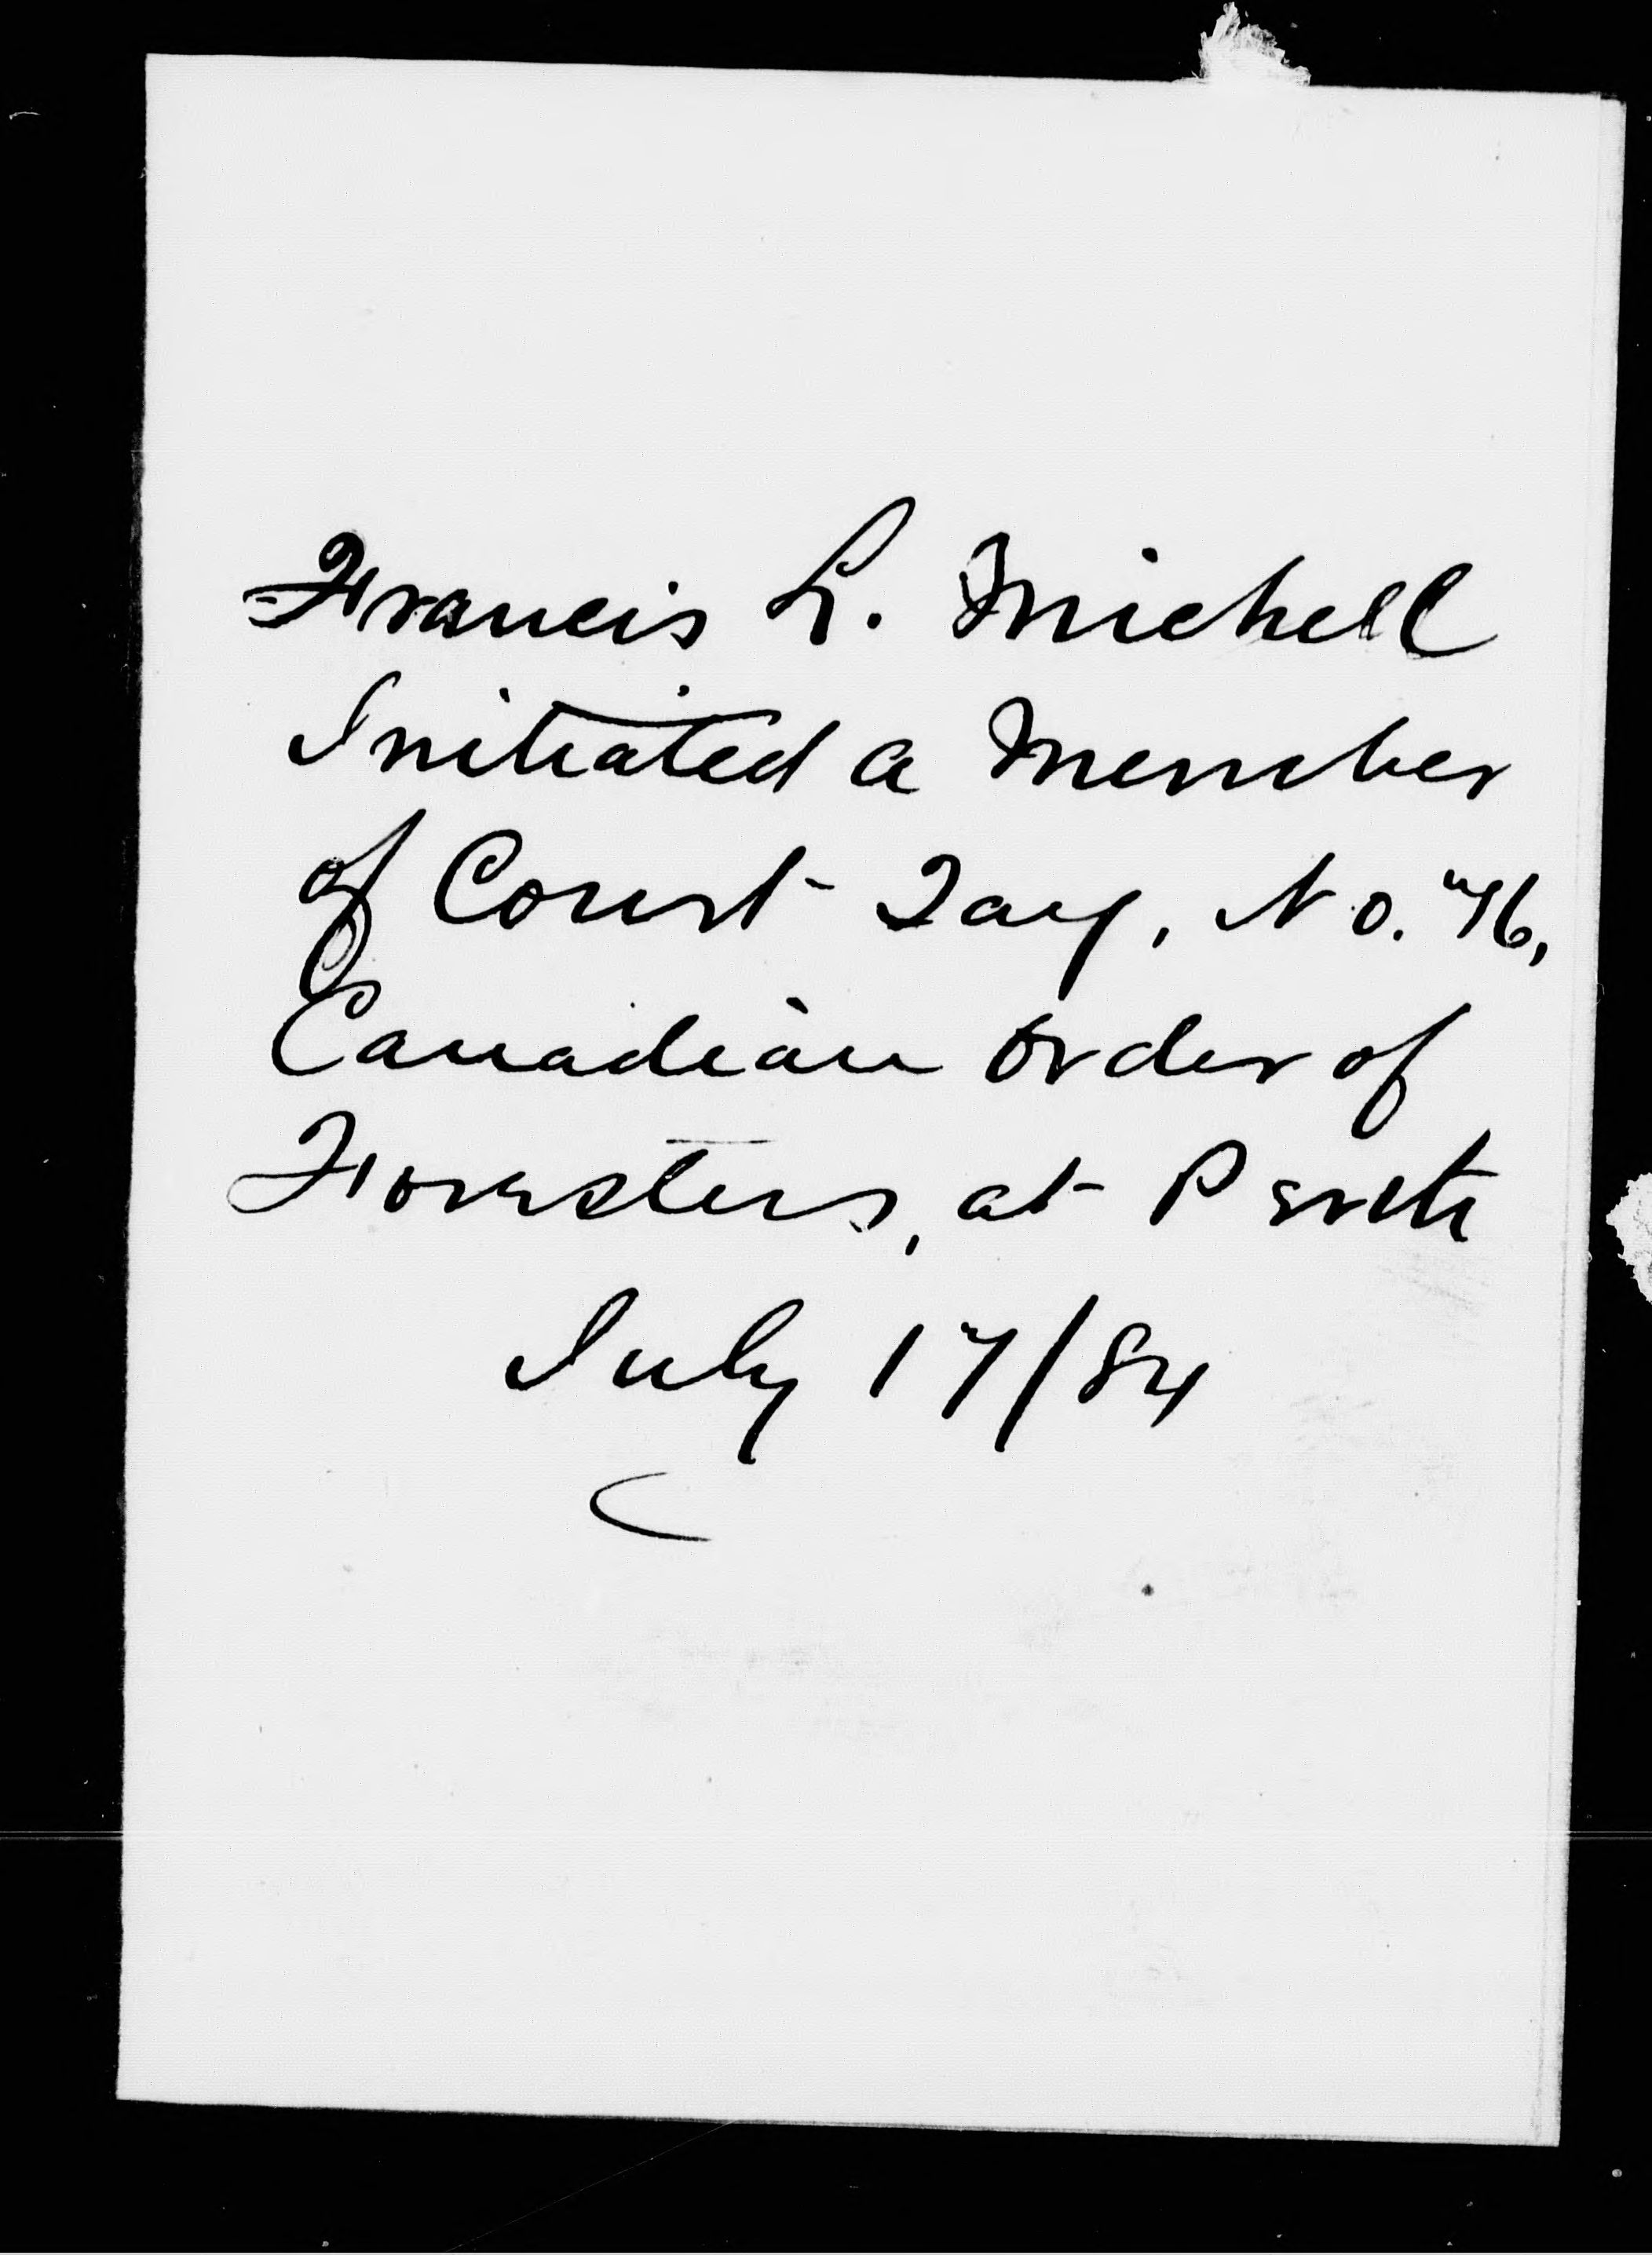 Francis L. Michell
Initiated a Member
of Court Tay, No. 76,
Canadian Order of
Foresters, at Perth
July 17/84